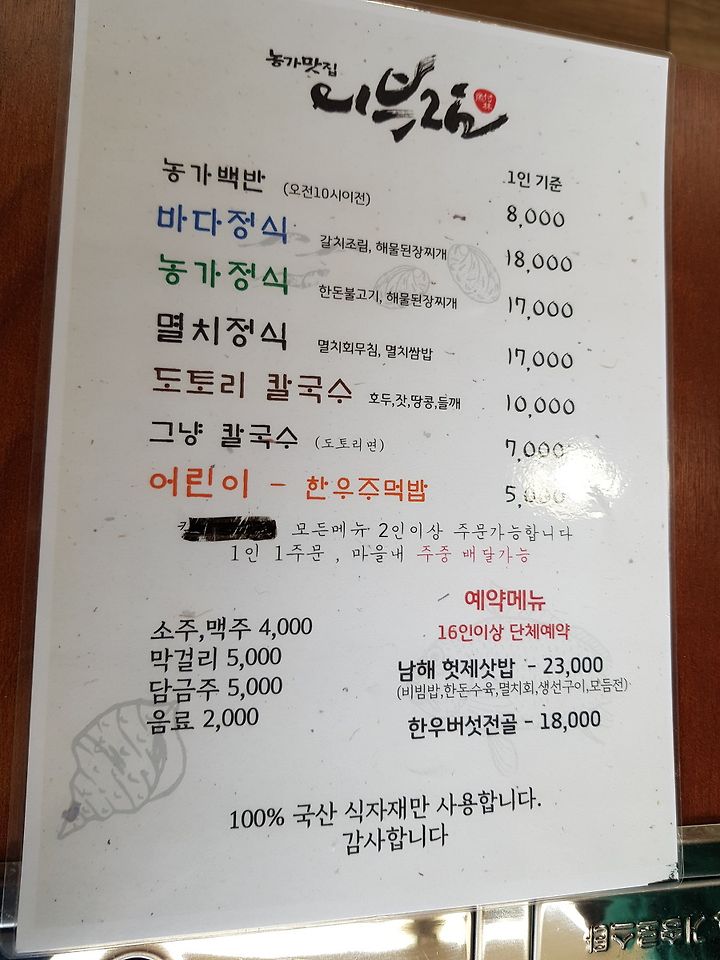 농가맛집
어부림
1인 기준
농가백반 (오전10시이전) 8,000
바다정식 갈치조림, 해물된장찌개 18,000
농가정식 한돈불고기, 해물된장찌개 17,000
멸치정식 멸치회무침, 멸치쌈밥 17,000
도토리 칼국수 호두,잣,땅콩,들깨 10,000
그냥 칼국수 (도토리면) 7,000
어린이 - 한우주먹밥 5,000
모든메뉴 2인이상 주문가능합니다
1인 1주문 , 마을내 주중 배달가능
소주,맥주 4,000
막걸리 5,000
담금주 5,000
음료 2,000
예약메뉴
16인이상 단체예약
남해 헛제삿밥 - 23,000
(비빔밥,한돈수육,멸치회,생선구이,모듬전)
한우버섯전골 - 18,000
100% 국산 식자재만 사용합니다.
감사합니다